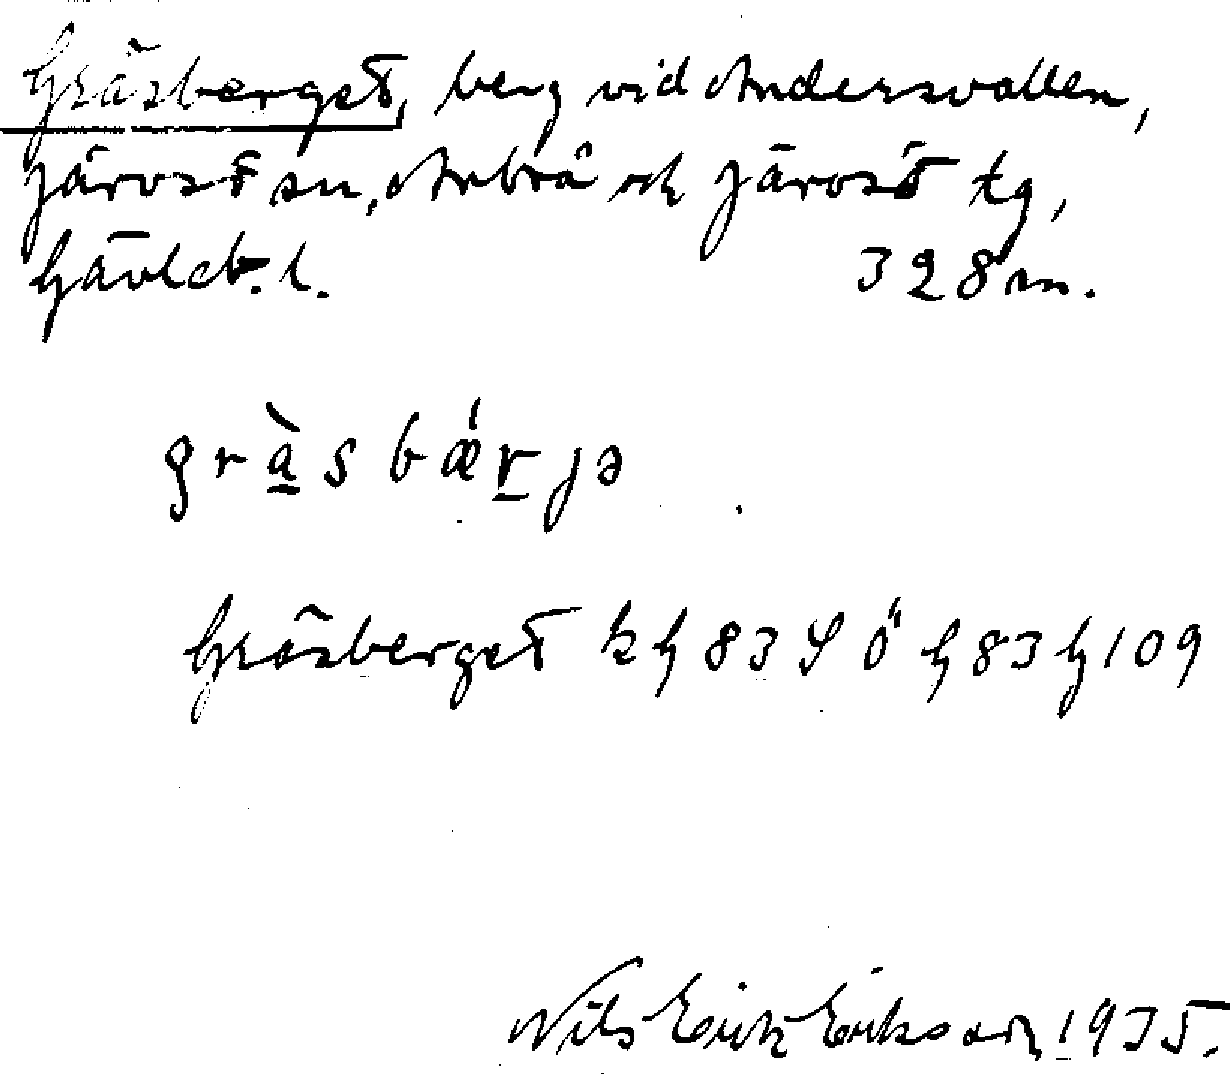 Gräsberget, berg vid Andersvallen,
Järvsö sn, Arbrå och Järvsö tg,
Gävleb. l. 328 m.
gràsbǽrjə
Gräsberget hf 83 S Ö f 83 G 109
Nils Erik Eriksson 1935.